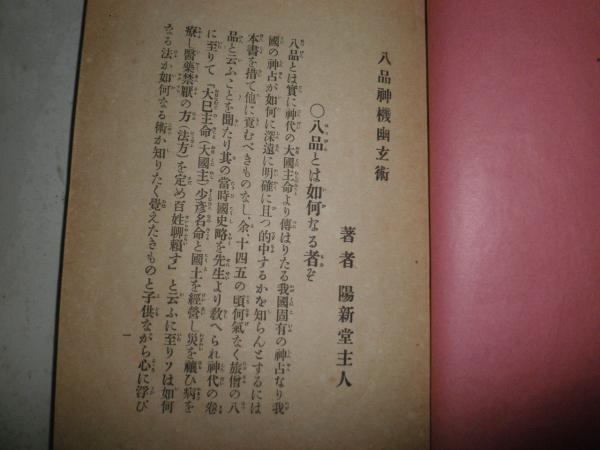 八品神機幽玄術
著者 陽新堂主人
〇八品とは如何なる者ぞ
八品とは實に神代の大國主命より傳はりたる我國固有の神占なり我
國の神占が如何に深遠に明確に且つ的中するかを知らんとするには
本書を措て他に覓むべきものなし、余、十四五の頃何氣なく旅僧の八
品と云ふことを聞たり其の當時國史略を先生より敎へられ神代の卷
に至りて『大巳主命(大國主)少彦名命と國土を經營し災を禳ひ病を
療し醫藥禁厭の方(法方)を定め百姓聊賴す』と云ふに至りソは如何
なる法か如何なる術か知りたく覺えたきものと子供ながら心に浮び
一